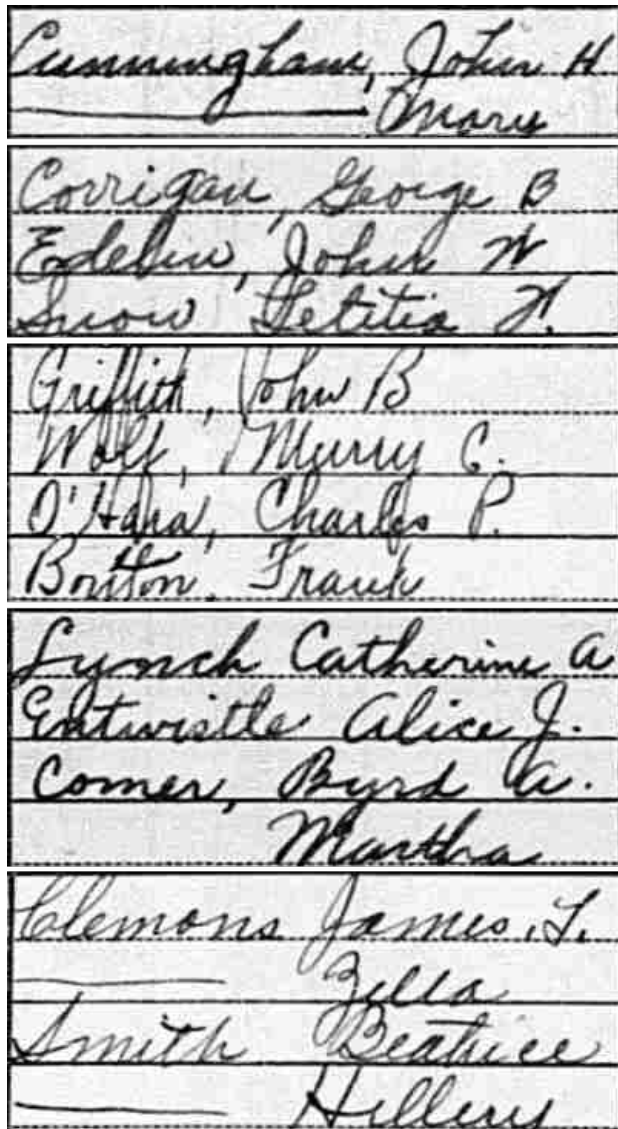 Cunningham, John H
——— Mary
Corrigan, George B
Edelin, John W
Snow Letitia H.
Griffith, John B
Wolf, Murry C.
O'Hara, Charles P.
Boutton, Frank
Lynch Catherine A
Entwistle Alice J.
Comer, Byrd A.
Martha
Clemons James. T.
——— Zella
Smith Beatrice
——— Hillery